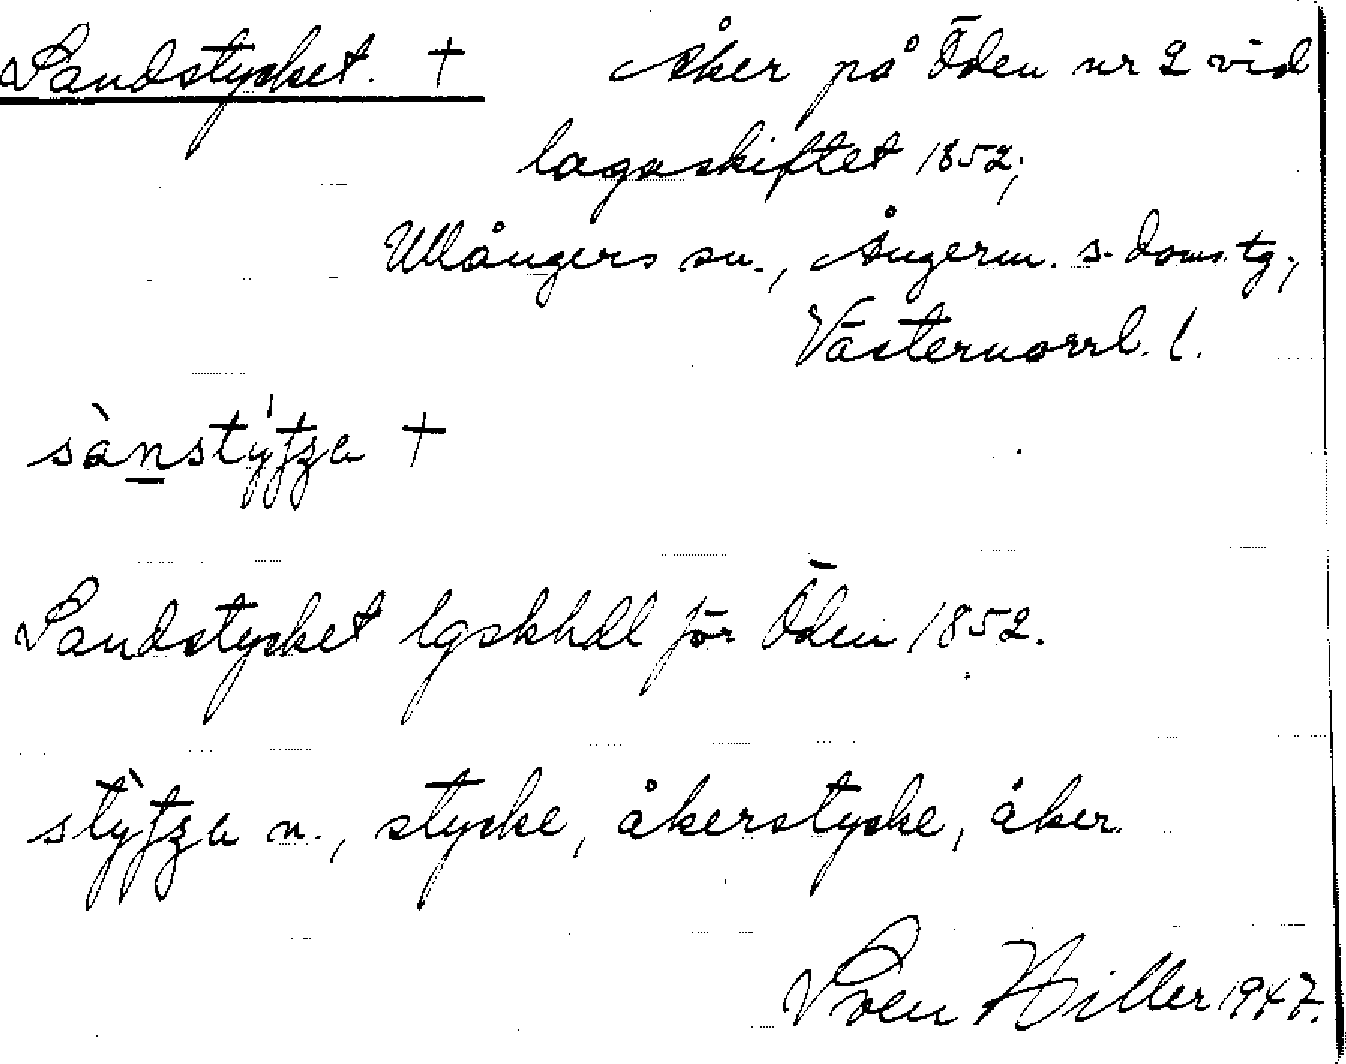 Sandstycket. † Åker på Öden nr 2 vid
lagaskiftet 1852;
Ullångers sn., Ångerm. s. doms.tg.,
Västernorrl. l.
Sandstycket lgskhdl för Öden 1852.
n., stycke, åkerstycke, åker.
Sven Hiller 1947.